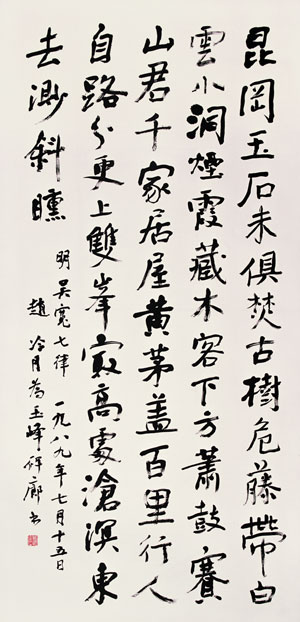 昆岡玉石未俱焚古樹危藤帶白
雲小洞煙霞藏木客下方蕭鼓賽
山君千家居屋黃茅蓋百里行人
自路分更上雙峯冣高處滄溟東
去渺斜曛
明吴寬七律 一九八九年七月十五日
趙冷月為玉峰碑廊书